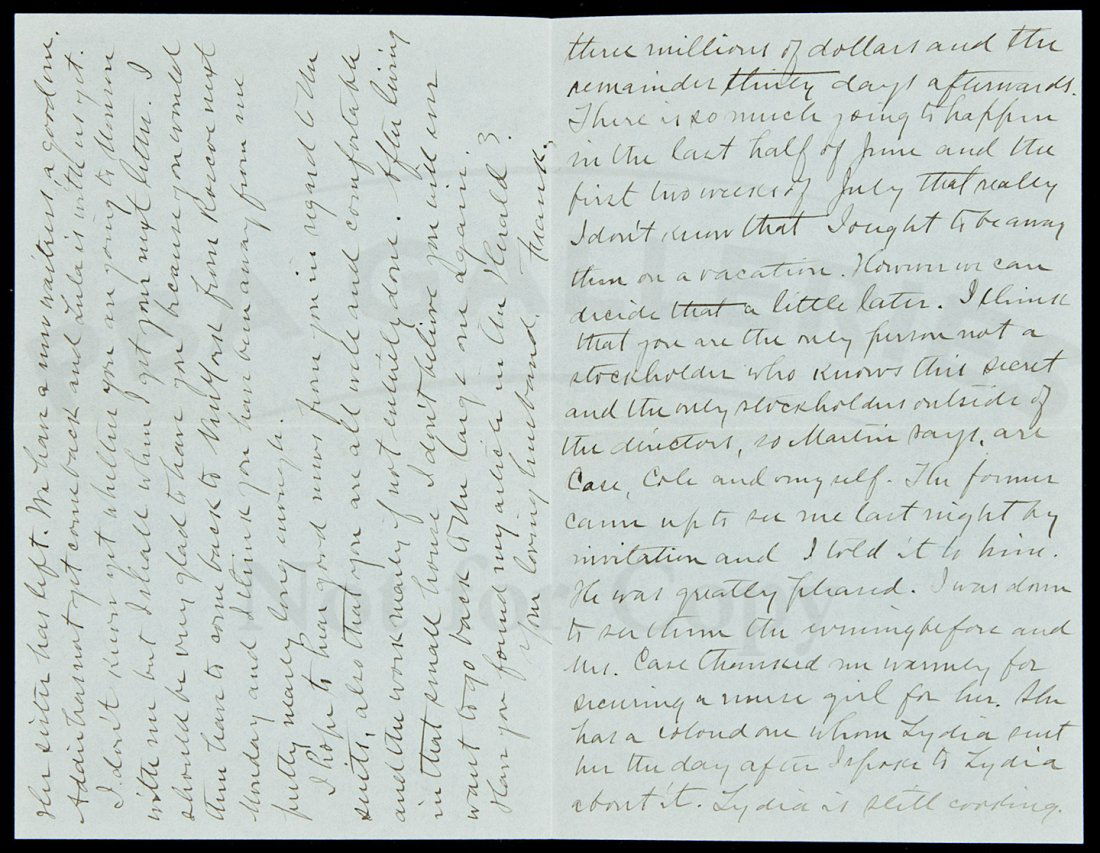 three millions of dollars and the
remainder thirty days afterwards.
There is so much going to happen
in the last half of June and the
first two weeks of July that really
I don't know that I ought to be away
then on a vacation. However we can
decide that a little later. I think
that you are the only person not a
stockholder who knows this secret
and the only stockholders outside of
the directors, so Martin says, are
Case, Cole and myself. The former
came up to see me last night by
invitation and I told it to him.
He was greatly pleased. I was down
to see them the evening before and
Mrs. Case thanked me warmly for
securing a nurse girl for her. She
has a colored one whom Lydia sent
her the day after I spoke to Lydia
about it. Lydia is still cooking.
Her sister has left. We have a new waitress a good one.
Addie has not yet come back and Lula is with us yet.
I don't know yet whether you are going to Vernon
with me but I shall when I get your next letter. I
should be very glad to have you because you would
then have to come back to New York from Roscoe next
Monday and I think you have been away from me
pretty nearly long enough.
I hope to hear good news from you in regard to the
suits, also that you are all well and comfortable
and the work nearly if not entirely done. After living
in that small house I don't believe you will ever
want to go back to the large one again.
Have you found my article in the Herald?
Your loving husband. Frank.
PBA GALLERIES
Not for Copy